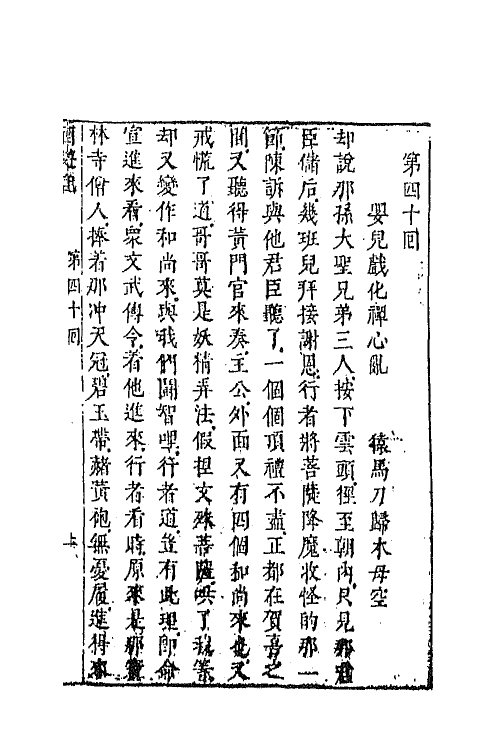 第四十回
嬰兒戲化禪心亂　猿馬刀歸木母空
却說那孫大聖兄弟三人按下雲頭徑至朝內只見那君
臣儲后幾班兒拜接謝恩行者將菩薩降魔收怪的那一
節陳訴與他君臣聽了一個個頂禮不盡正都在賀喜之
間又聽得黃門官來奏主公外面又有四個和尚來也八
戒慌了道哥哥莫是妖精弄法假捏文殊菩薩哄了我等
却又變作和尚來與我們鬪智哩行者道豈有此理即命
宣進來看衆文武傳令着他進來行者看時原來是那寶
林寺僧人捧着那冲天冠碧玉帶赭黃袍無憂履進得來
西遊記　第四十回　上